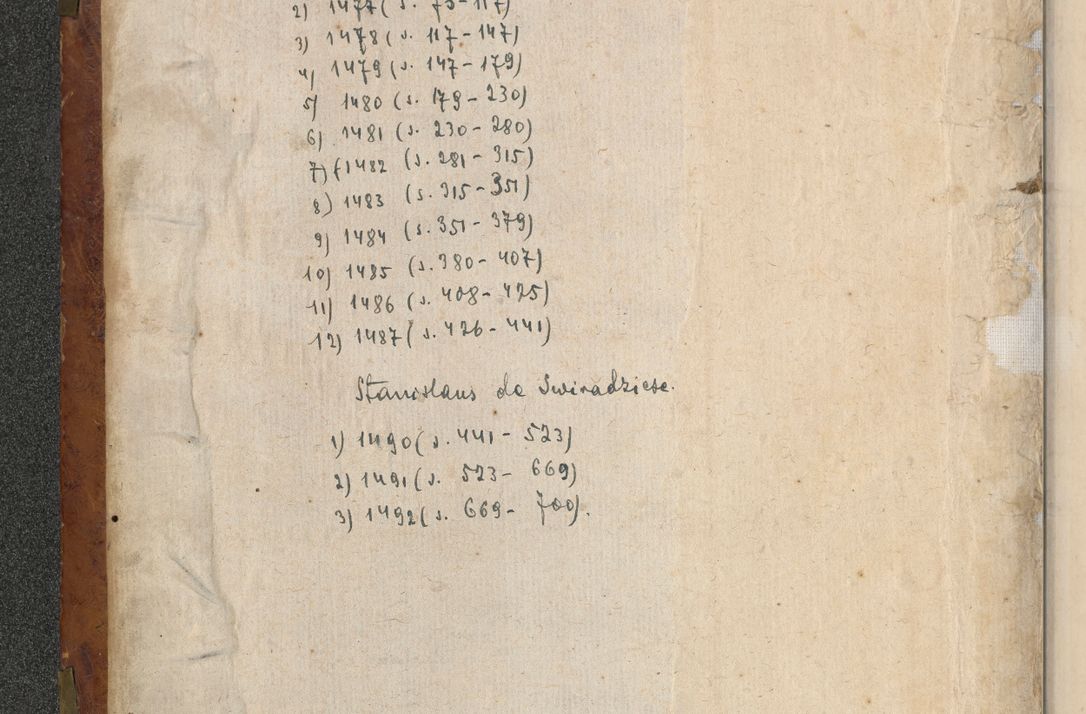 2) 1477 (s. 73-117)
3) 1478 (s. 117-147)
4) 1479 (s. 147-179)
5) 1480 (s. 179-230)
6) 1481 (s. 230-280)
7) (1482 (s. 281-315)
8) 1483 (s. 315-351)
9) 1484 (s. 351-379)
10) 1485 (s. 380-407)
11) 1486 (s. 408-425)
12) 1487 (s. 426-441)
Stanislaus de Swiradzice.
1) 1490 (s. 441-523)
2) 1491 (s. 523-669)
3) 1492 (s. 669-700).